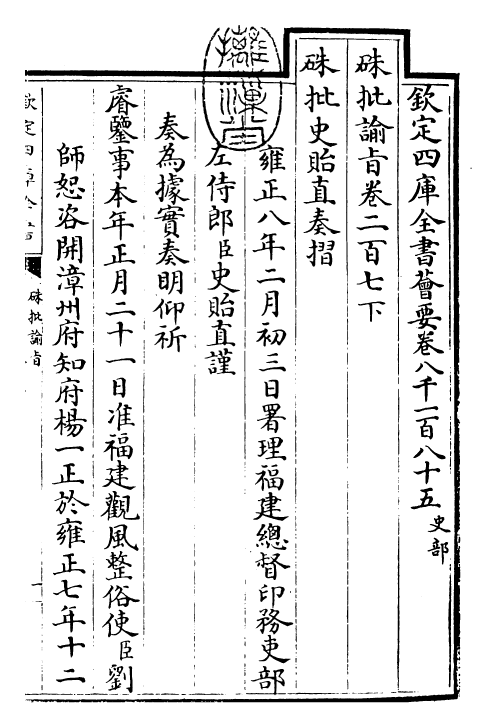 欽定四庫全書薈要卷八千一百八十五 史部
硃批諭旨卷二百七下
硃批史貽直奏摺
雍正八年二月初三日署理福建總督印務吏部
左侍郎臣史貽直謹
奏為據實奏明仰祈
睿鑒事本年正月二十一日准福建觀風整俗使臣劉
師恕咨開漳州府知府楊一正於雍正七年十二
欽定四庫全書
硃批諭旨
一